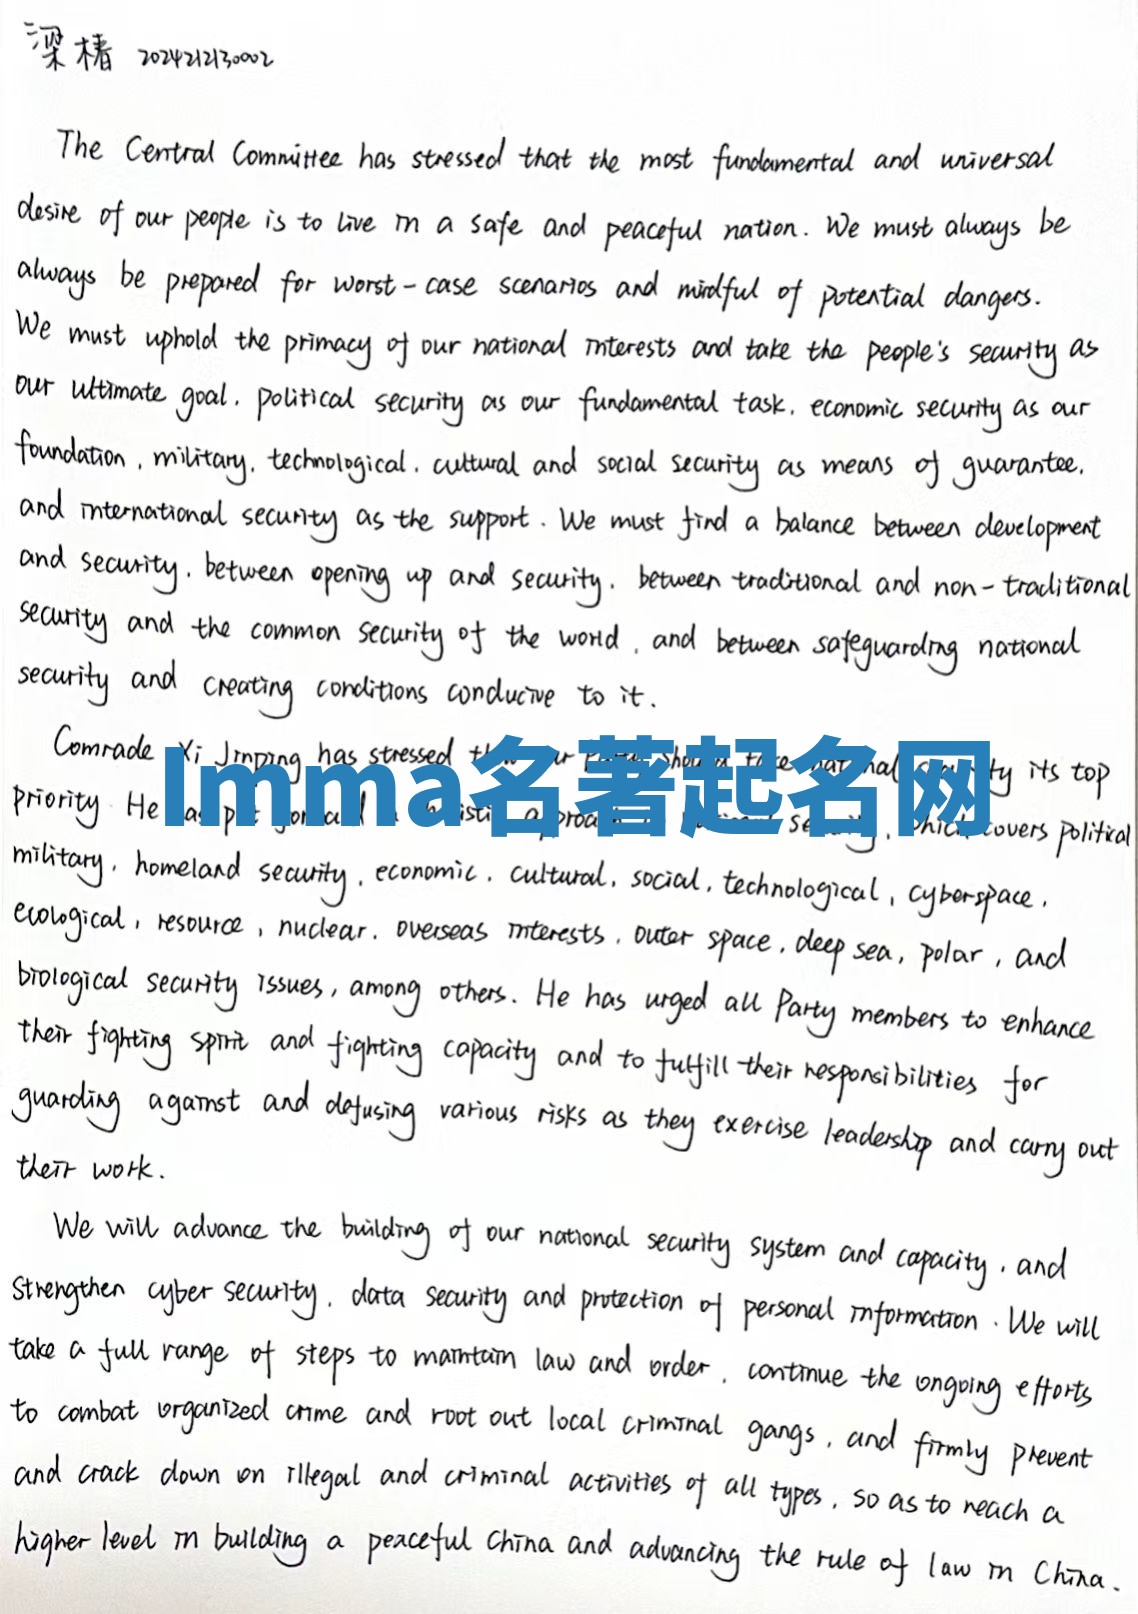 梁椿 2024212130002
The Central Committee has stressed that the most fundamental and universal
desire of our people is to live in a safe and peaceful nation. We must always be
always be prepared for worst-case scenarios and mindful of potential dangers.
We must uphold the primacy of our national interests and take the people's security as
our ultimate goal, political security as our fundamental task, economic security as our
foundation, military, technological, cultural and social security as means of guarantee,
and international security as the support. We must find a balance between development
and security, between opening up and security, between traditional and non-traditional
security and the common security of the world, and between safeguarding national
security and creating conditions conducive to it.
Comrade Xi Jinping has stressed its top
Imma名著起名网
priority. He covers political
military, homeland security, economic, cultural, social, technological, cyberspace,
ecological, resource, nuclear, overseas interests, outer space, deep sea, polar, and
biological security issues, among others. He has urged all Party members to enhance
their fighting spirit and fighting capacity and to fulfill their responsibilities for
guarding against and defusing various risks as they exercise leadership and carry out
their work.
We will advance the building of our national security system and capacity, and
strengthen cyber security, data security and protection of personal information. We will
take a full range of steps to maintain law and order, continue the ongoing efforts
to combat organized crime and root out local criminal gangs, and firmly prevent
and crack down on illegal and criminal activities of all types, so as to reach a
higher level in building a peaceful China and advancing the rule of law in China.